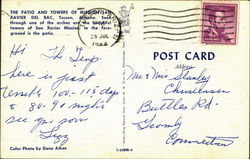 THE PATIO AND TOWERS OF MISSION SAN
XAVIER DEL BAC, Tucson, Arizona. Seen
through one of the arches are the
towers of San Xavier Mission. In the fore-
ground is the patio.
Hi The Temp
here is just
terrific 100-115 days
& 80-90 nights
see you soon
Color Photo by Gene Aiken
29 JUL
POST CARD
Mr & Mrs Stanley
Christensen
Buttles Rd.
Granby
Connecticut